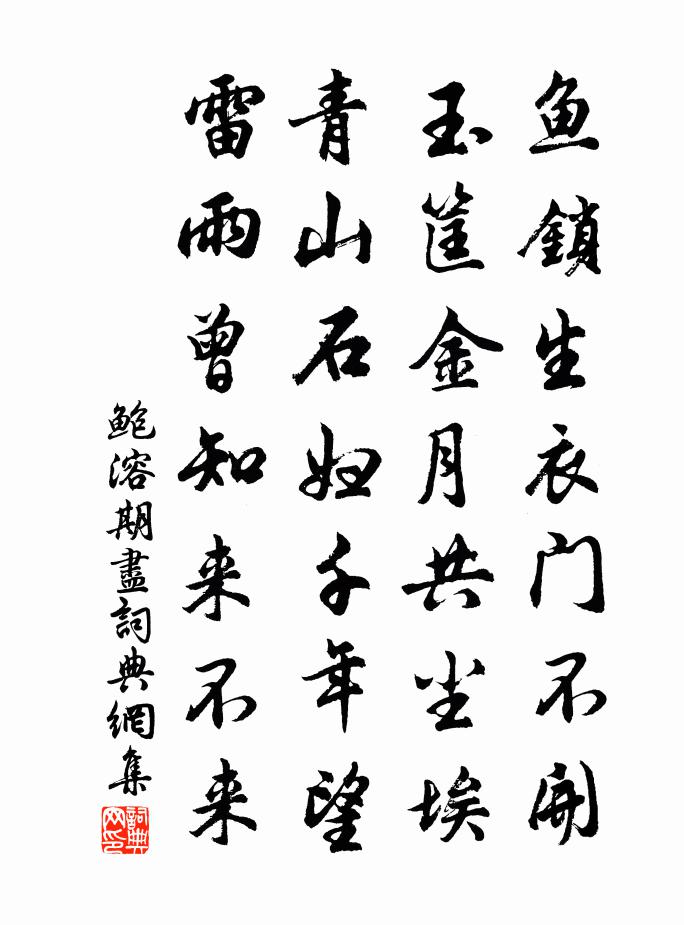 鱼鎖生衣门不開
玉筐金月共尘埃
青山石妇千年望
雷雨曾知来不来
鲍溶期盡詞典網集
詞典网印